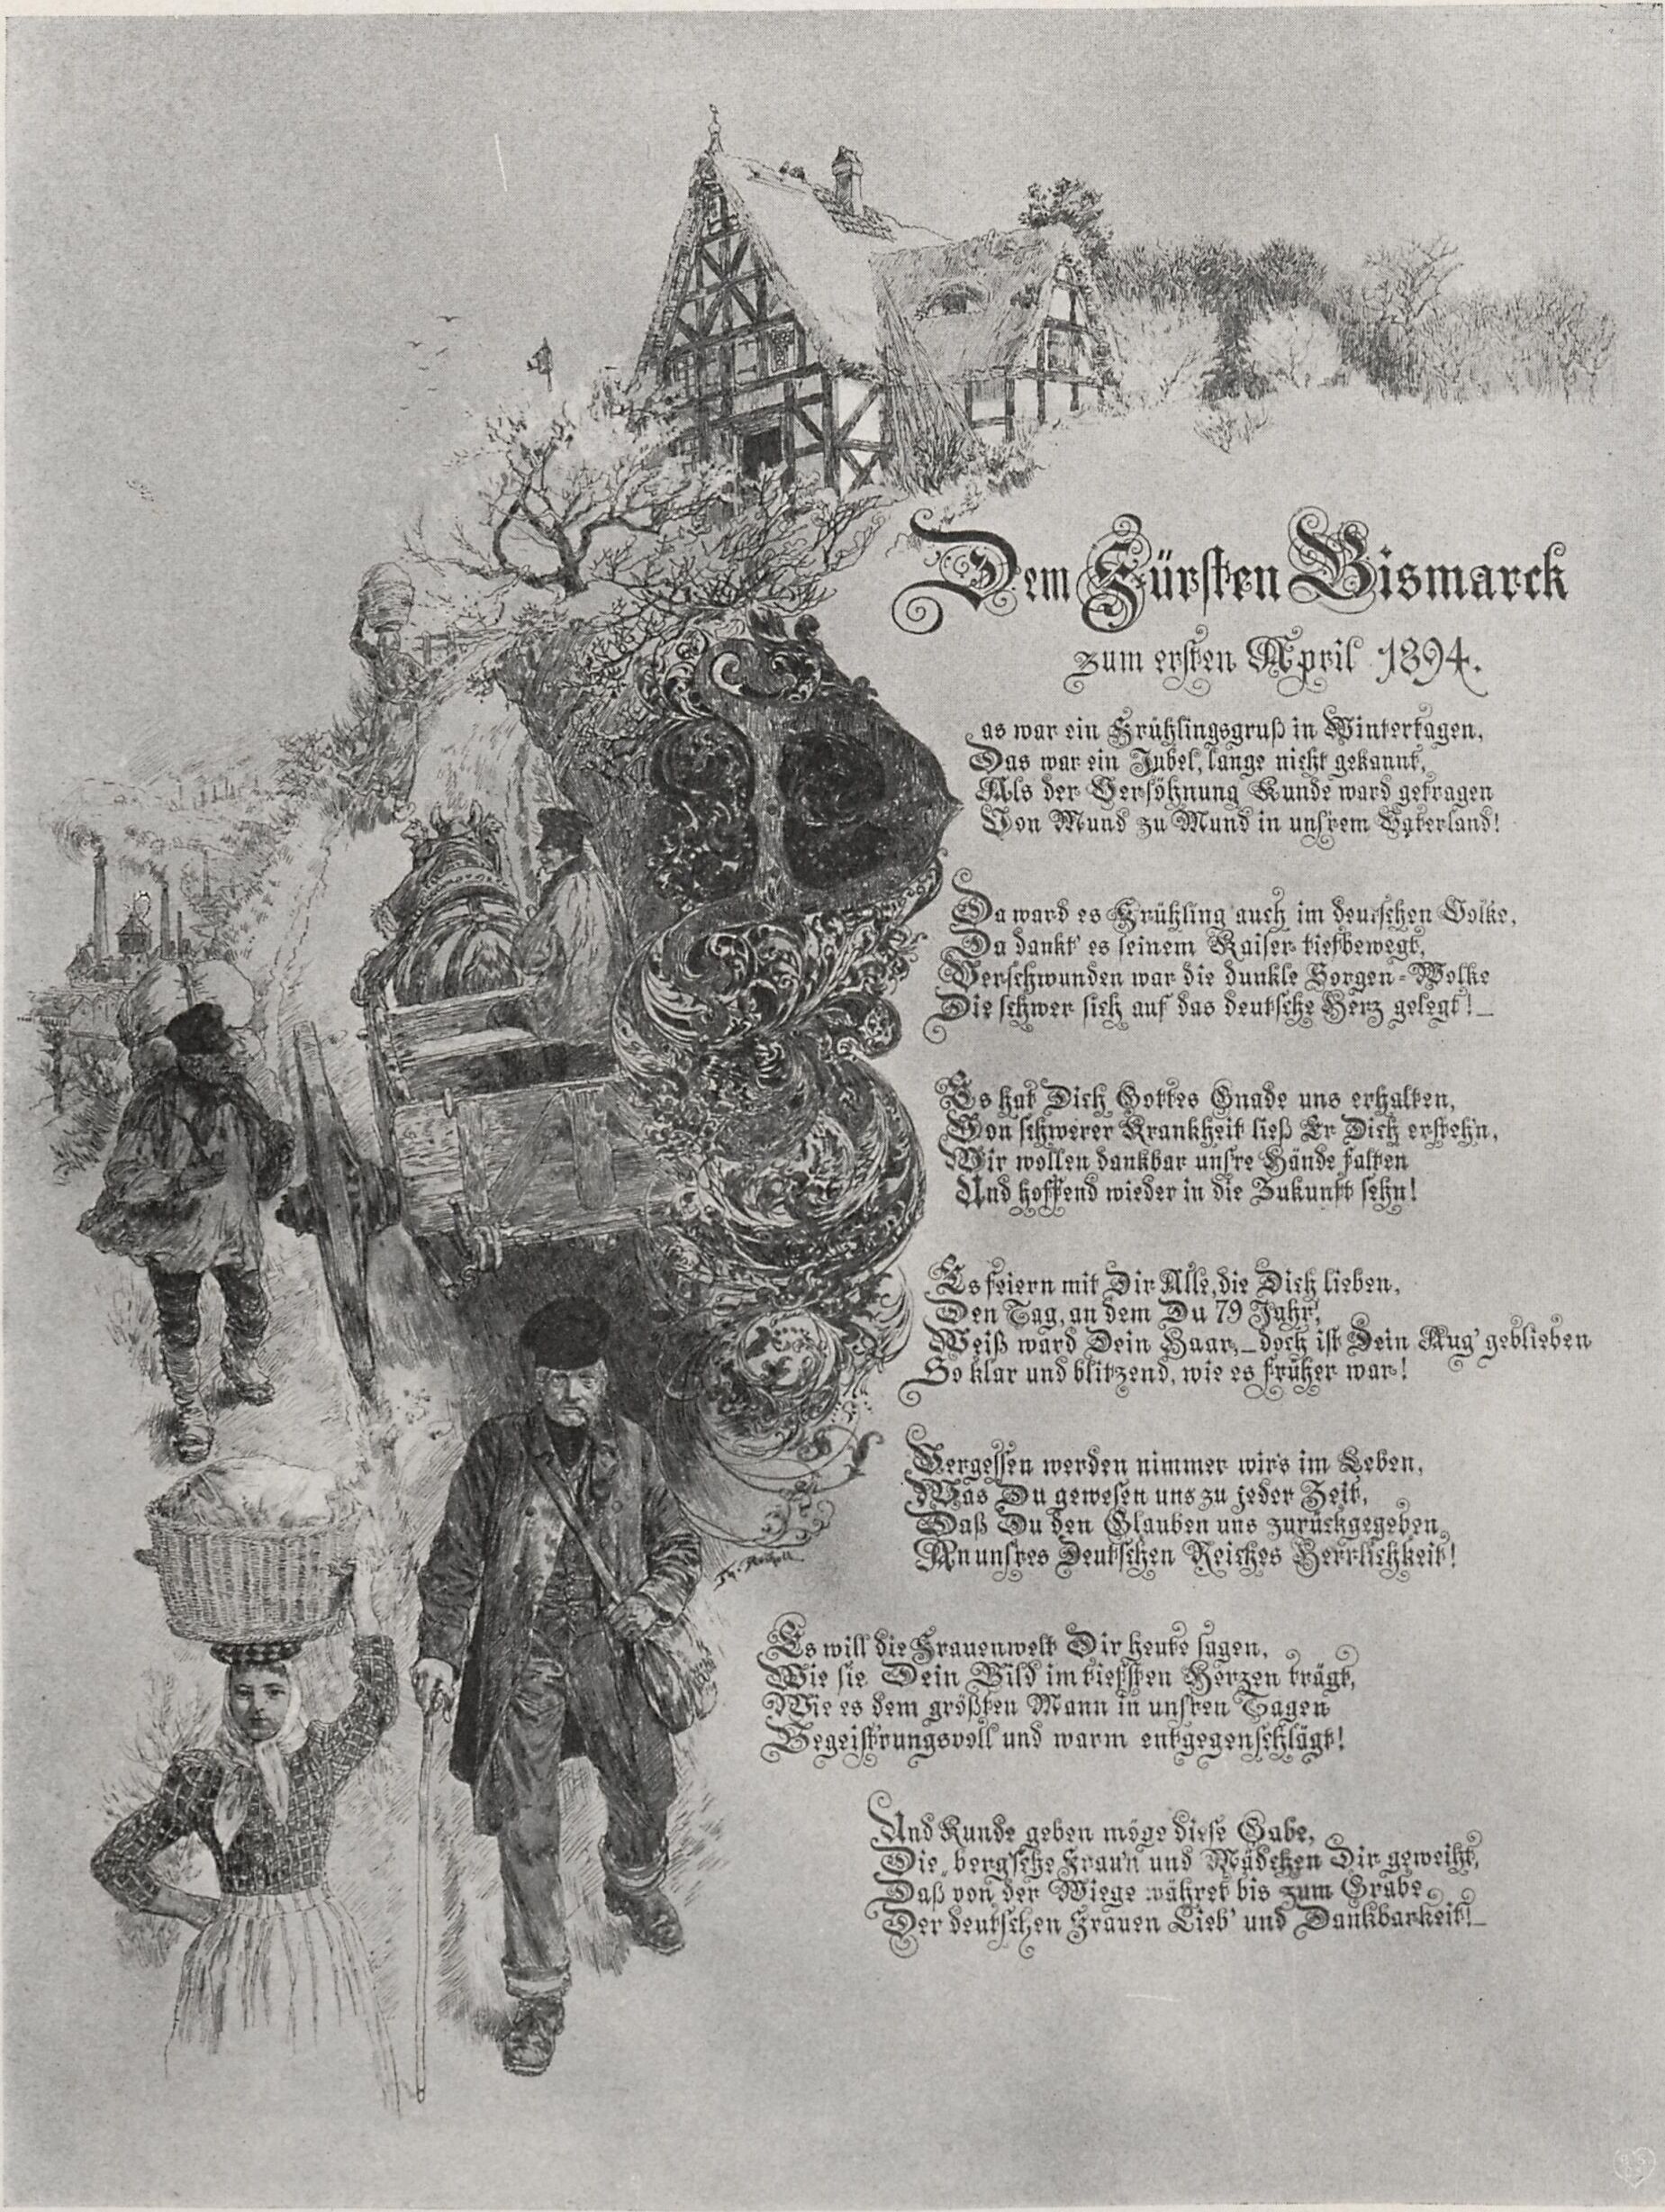 Dem Fürsten Bismarck
zum ersten April 1894.
Das war ein Frühlingsgruß in Wintertagen,
Das war ein Jubel, lange nicht gekannt,
Als der Versöhnung Kunde ward getragen
Von Mund zu Mund in unsrem Vaterland!
Da ward es Frühling auch im deutschen Volke,
Da dankt' es seinem Kaiser tiefbewegt,
Verschwunden war die dunkle Sorgen-Wolke
Die schwer sich auf das deutsche Herz gelegt!_
Es hat Dich Gottes Gnade uns erhalten,
Von schwerer Krankheit ließ Er Dich ersteh'n,
Wir wollen dankbar unsre Hände falten
Und hoffend wieder in die Zukunft sehn!
Es feiern mit Dir Alle, die Dich lieben,
Den Tag, an dem Du 79 Jahr',
Weiß ward Dein Haar,_ doch ist Dein Aug' geblieben
So klar und blitzend, wie es früher war!
Vergessen werden nimmer wir's im Leben,
Was Du gewesen uns zu jeder Zeit,
Daß Du den Glauben uns zurückgegeben
An unsres Deutschen Reiches Herrlichkeit!
Es will die Frauenwelt Dir heute sagen,
Wie sie Dein Bild im tiefsten Herzen trägt,
Wie es dem größten Mann in unsren Tagen
Begeist'rungsvoll und warm entgegenschlägt!
Und Kunde geben möge diese Gabe,
Die berg'sche Frau'n und Mädchen Dir geweiht,
Daß von der Wiege währet bis zum Grabe
Der deutschen Frauen Lieb' und Dankbarkeit!_
Th. Rocholl